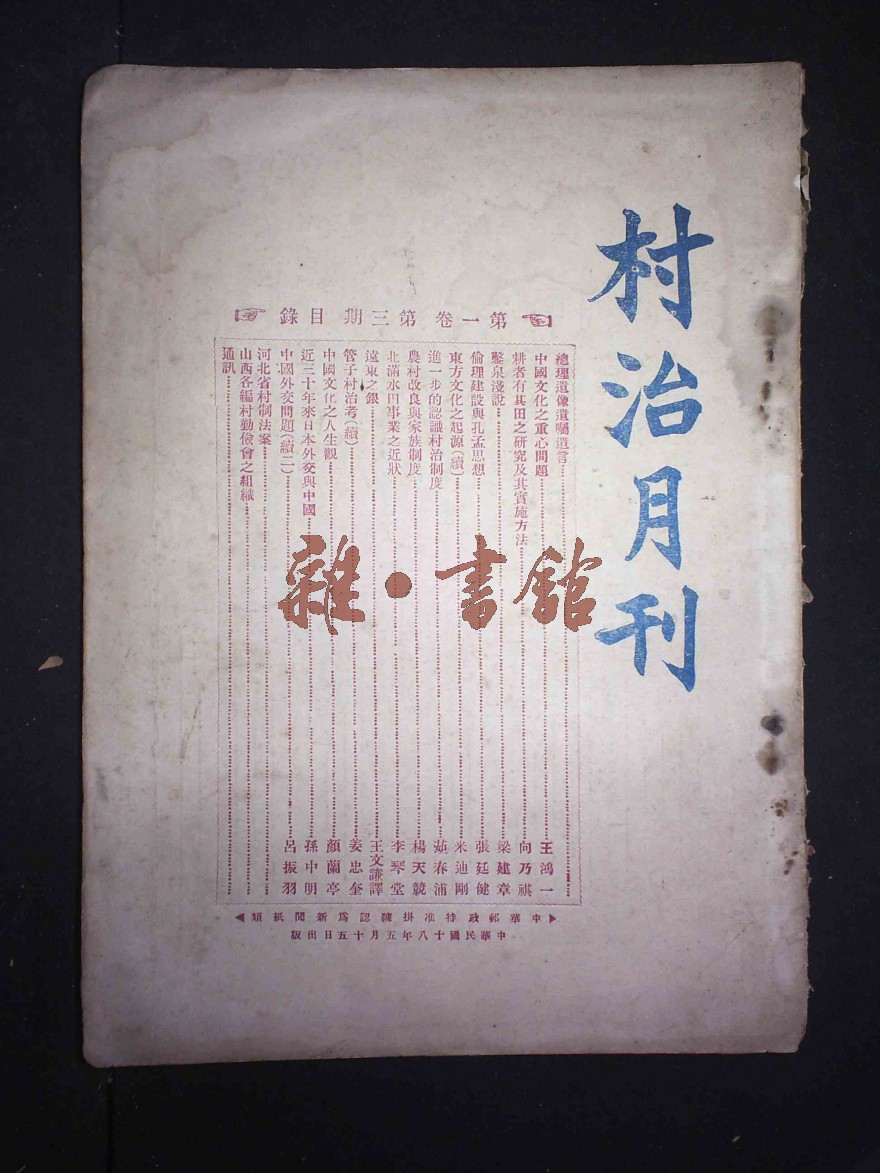 村治月刊
第一卷 第三期 目錄
總理遺像遺囑遺言
中國文化之重心問題 王鴻一
耕者有其田之研究及其實施方法 向乃祺
鑿泉淺說 梁建章
倫理建設與孔孟思想 張廷健
東方文化之起源(續) 米迪剛
進一步的認識村治制度 春浦
農村改良與家族制度 楊天競
北滿水田事業之近狀 李琴堂
遠東之銀 王文謙譯
管子村治考(續) 姜忠奎
中國文化之人生觀 顏蘭亭
近三十年來日本外交與中國 孫中明
中國外交問題(續二) 呂振羽
河北省村制法案
山西各編村勤儉會之組織
通訊
中華郵政特准掛號認爲新聞紙類
中華民國十八年五月十五日出版
雜·書館